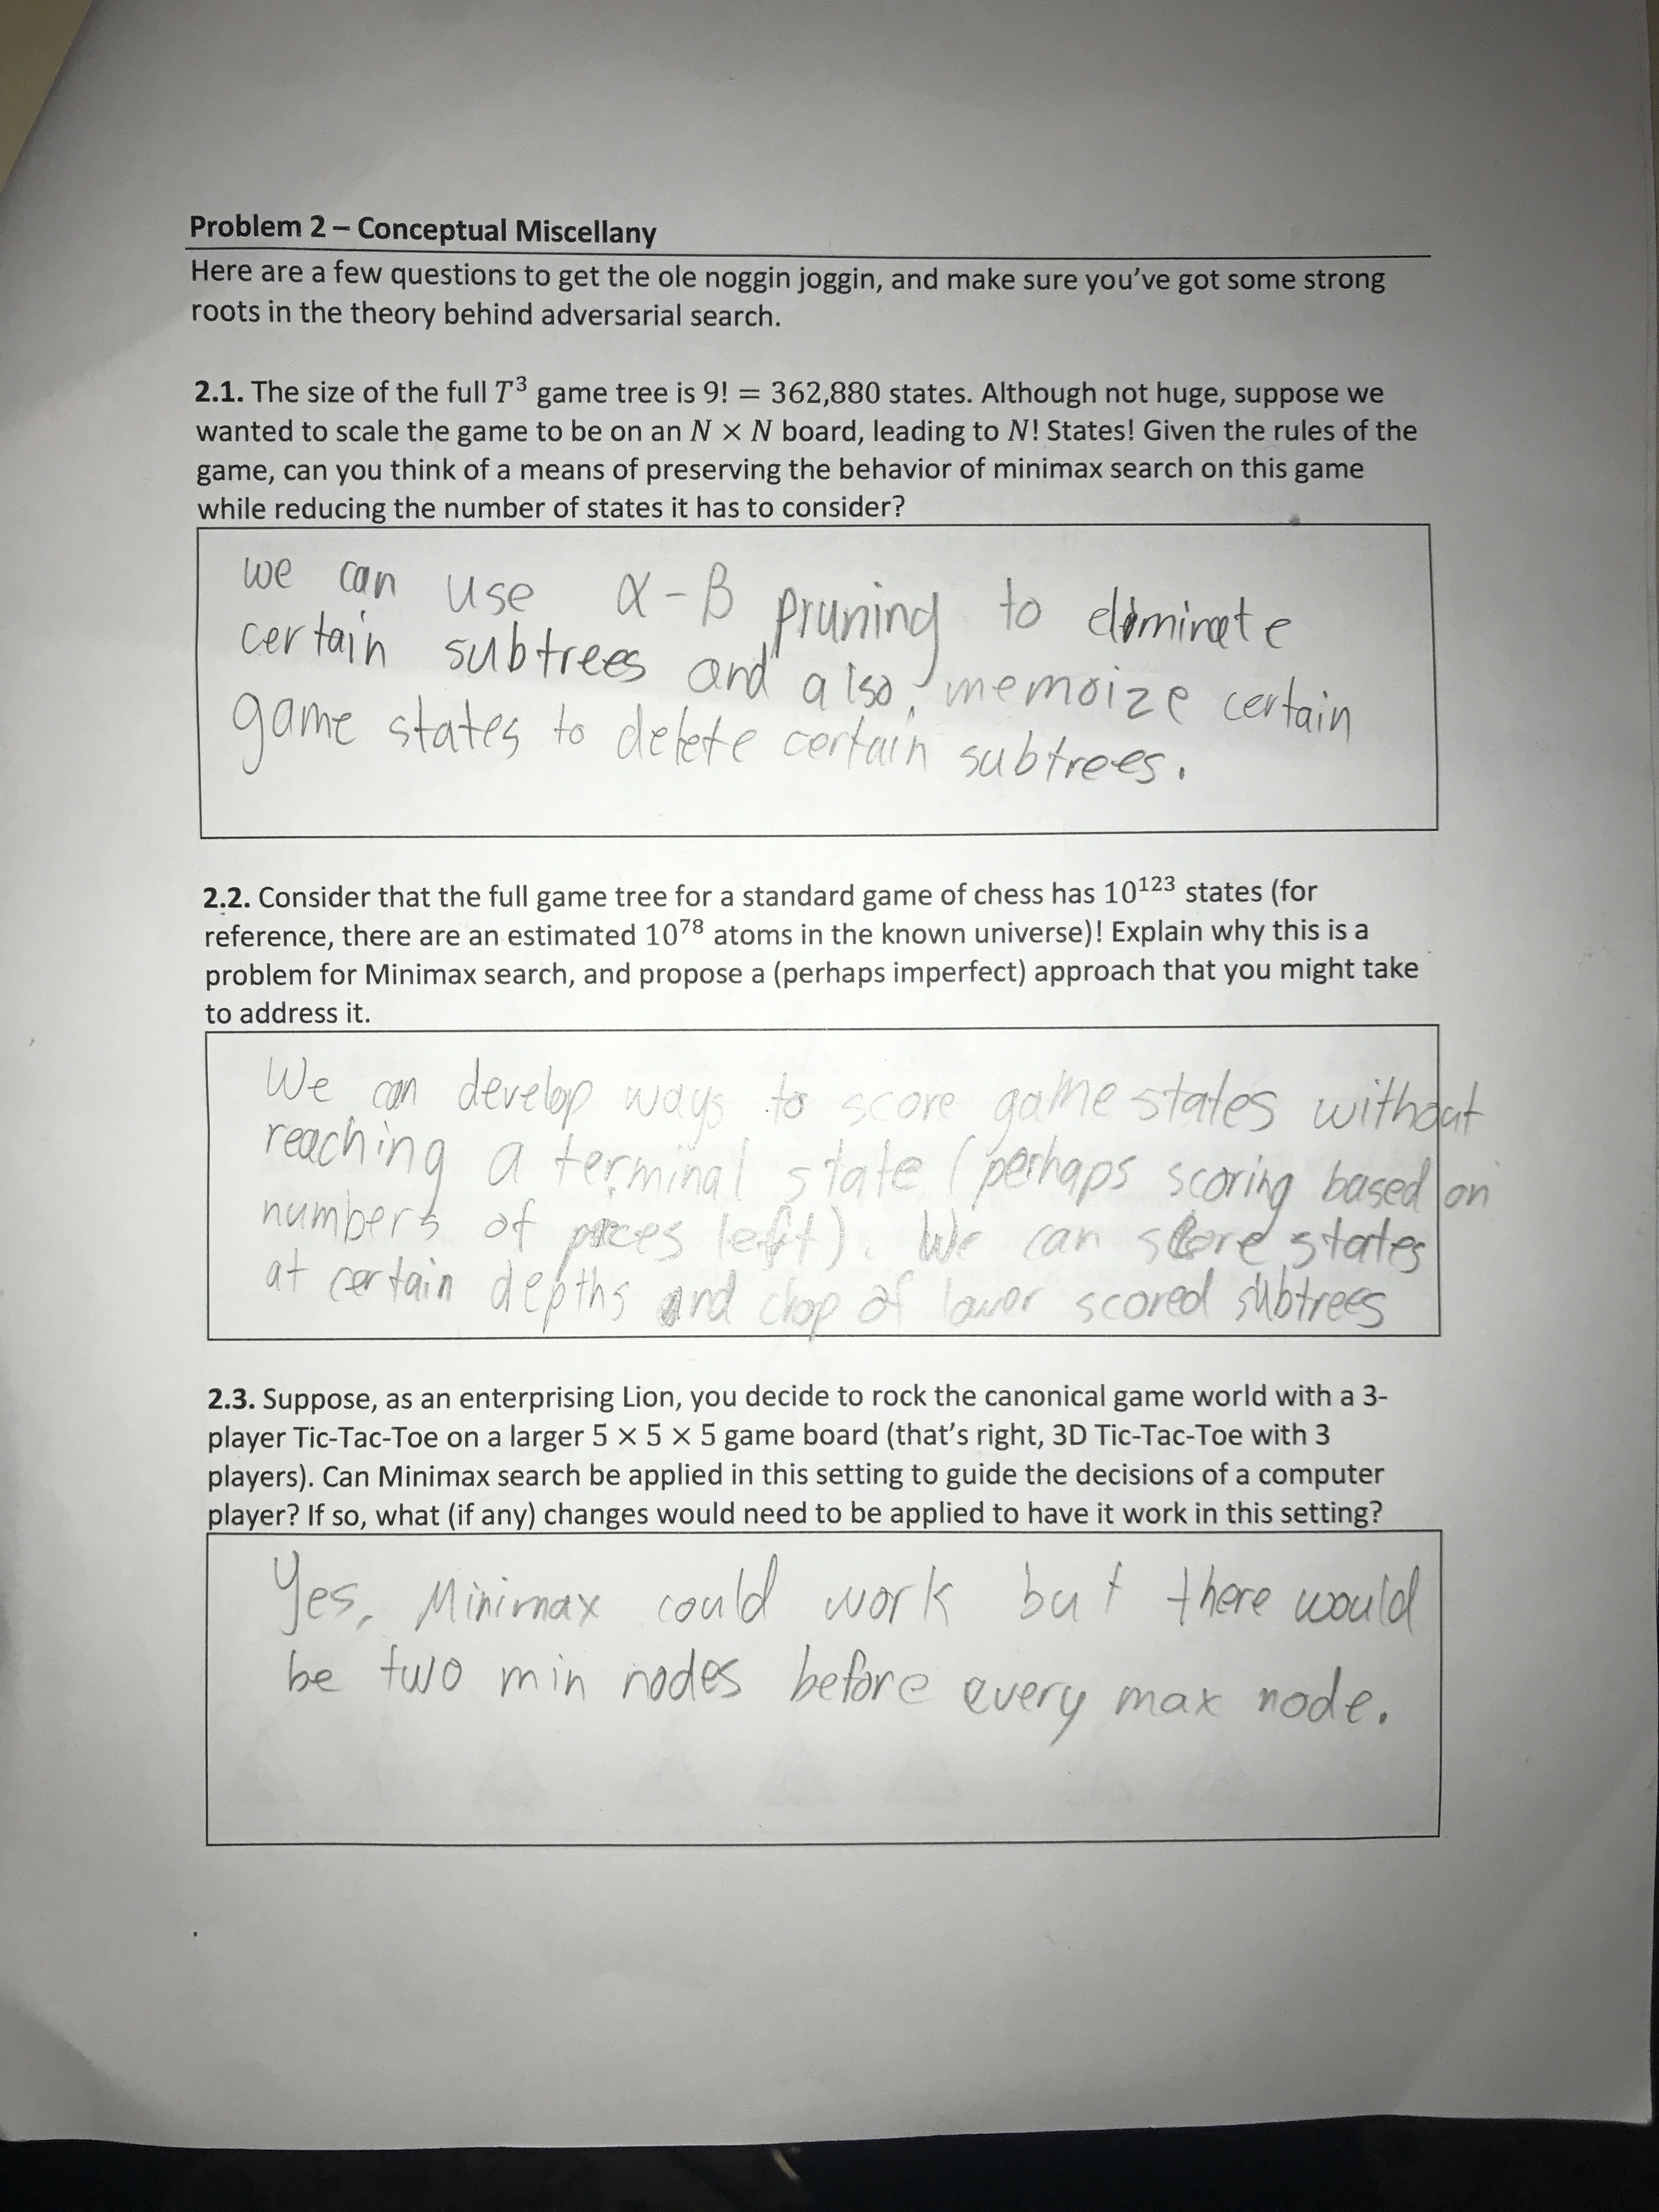 Problem 2 – Conceptual Miscellany
Here are a few questions to get the ole noggin joggin, and make sure you've got some strong
roots in the theory behind adversarial search.
2.1. The size of the full T³ game tree is 9! = 362,880 states. Although not huge, suppose we
wanted to scale the game to be on an N × N board, leading to N! States! Given the rules of the
game, can you think of a means of preserving the behavior of minimax search on this game
while reducing the number of states it has to consider?
we can use α-β pruning to eliminate
certain subtrees and also, memoize certain
game states to delete certain subtrees.
2.2. Consider that the full game tree for a standard game of chess has 10¹²³ states (for
reference, there are an estimated 10⁷⁸ atoms in the known universe)! Explain why this is a
problem for Minimax search, and propose a (perhaps imperfect) approach that you might take
to address it.
We can develop ways to score game states without
reaching a terminal state (perhaps scoring based on
numbers of pieces left). We can score states
at certain depths and chop of lower scored subtrees
2.3. Suppose, as an enterprising Lion, you decide to rock the canonical game world with a 3-
player Tic-Tac-Toe on a larger 5 × 5 × 5 game board (that's right, 3D Tic-Tac-Toe with 3
players). Can Minimax search be applied in this setting to guide the decisions of a computer
player? If so, what (if any) changes would need to be applied to have it work in this setting?
Yes, Minimax could work but there would
be two min nodes before every max node.